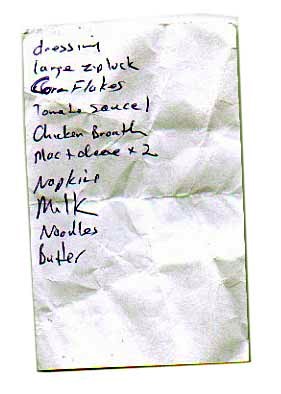 dressing
large ziplock
Corn Flakes
Tomato sauce 1
Chicken Broath
Mac + cheese x 2
Napkins
Milk
Noodles
Butter